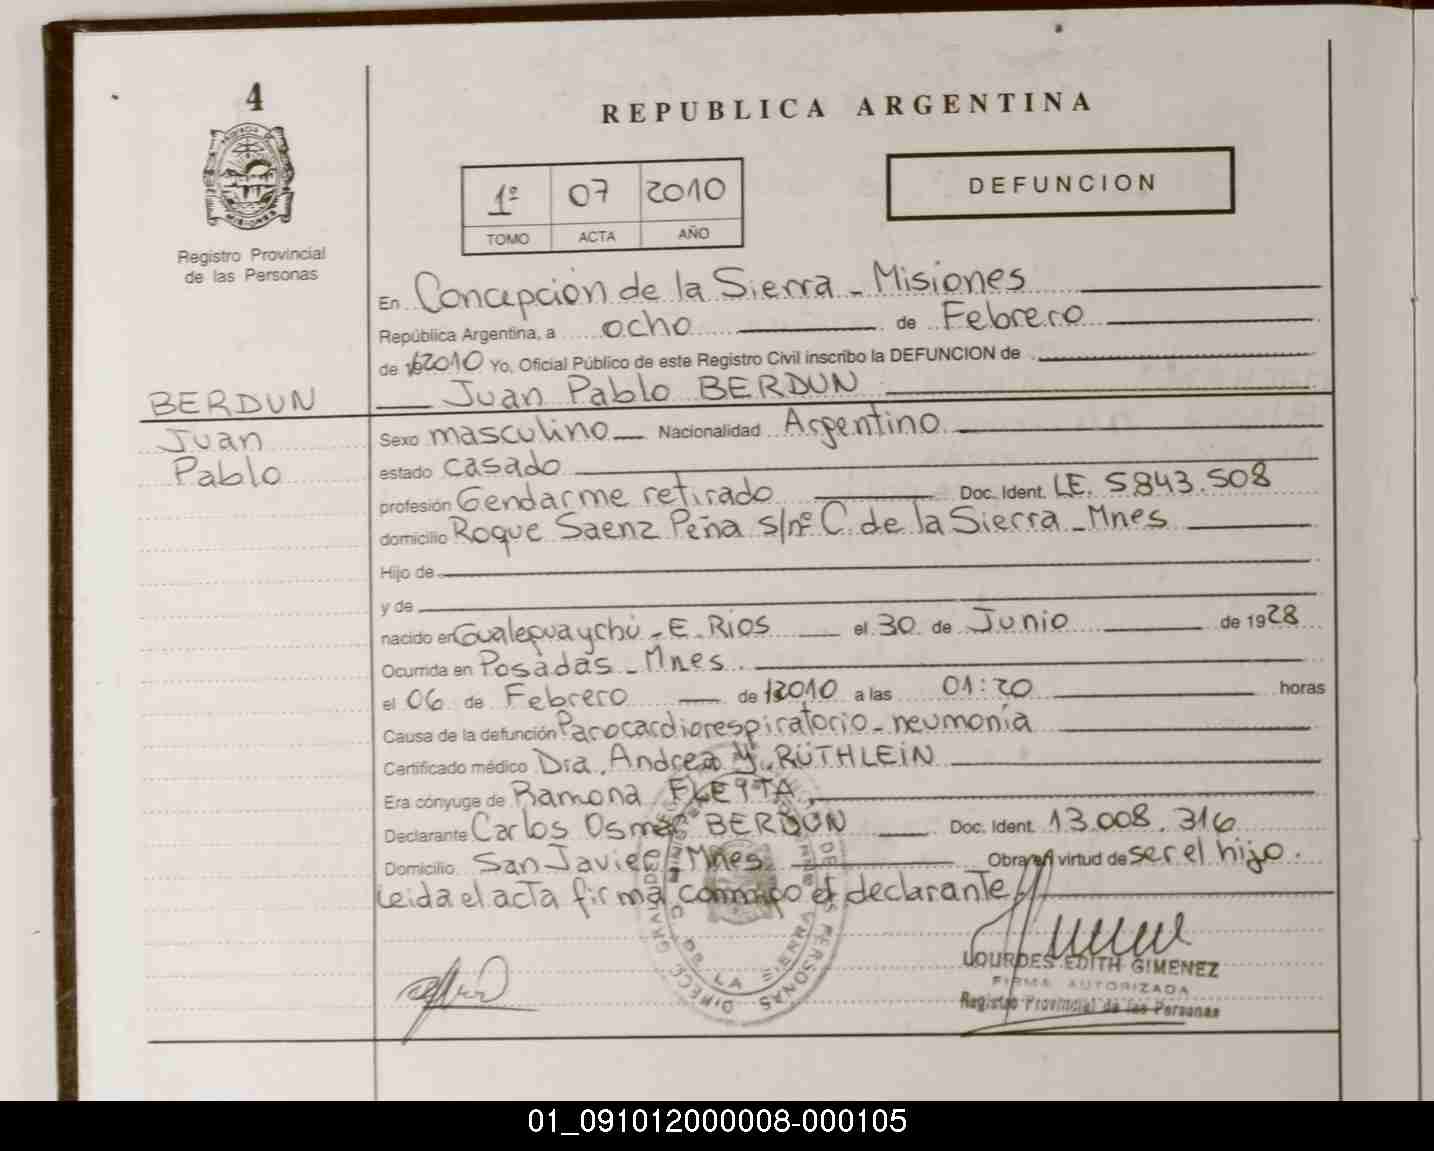 4
REPUBLICA ARGENTINA
1º 07 2010
TOMO ACTA AÑO
DEFUNCION
Registro Provincial
de las Personas
En Concepción de la Sierra - Misiones
República Argentina, a ocho de Febrero
de 2010 Yo, Oficial Público de este Registro Civil inscribo la DEFUNCION de
Juan Pablo BERDUN
BERDUN
Juan
Pablo
Sexo masculino Nacionalidad Argentino
estado casado
profesión Gendarme retirado Doc. Ident. LE. 5843.508
domicilio Roque Saenz Peña s/nº C. de la Sierra - Mnes
Hijo de
y de
nacido en Gualeguaychú - E. Ríos el 30 de Junio de 1928
Ocurrida en Posadas - Mnes
el 06 de Febrero de 2010 a las 01:20 horas
Causa de la defunción Parocardiorespiratorio - neumonía
Certificado médico Dra. Andrea Y. RÜTHLEIN
Era cónyuge de Ramona
Declarante Carlos Osmar BERDÚN Doc. Ident. 13.008.316
Domicilio San Javier Mnes Obra en virtud de ser el hijo.
Leida el acta firma conmigo el declarante
LOURDES EDITH GIMENEZ
FIRMA AUTORIZADA
Registro Provincial de las Personas
01_091012000008-000105